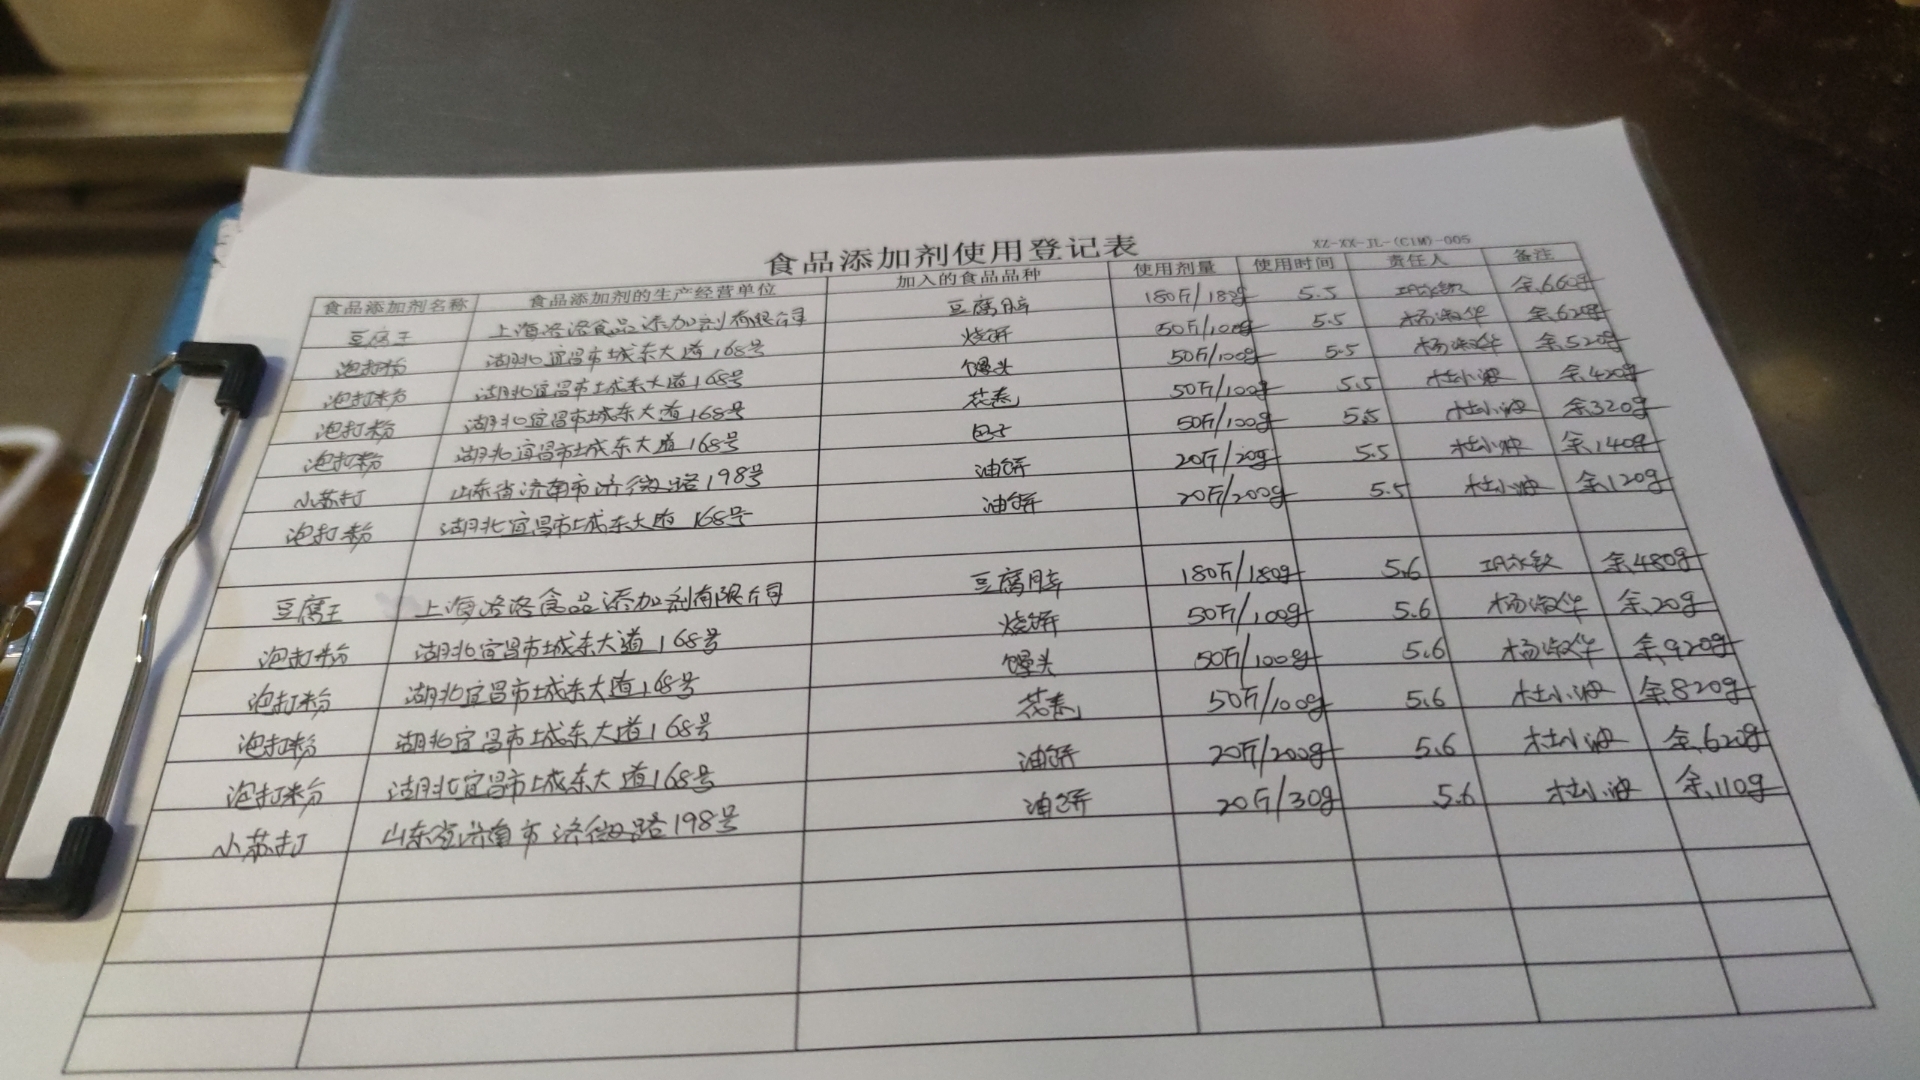 食品添加剂使用登记表
XZ-XX-JL-(CLM)-005
食品添加剂名称 食品添加剂的生产经营单位 加入的食品品种 使用剂量 使用时间 责任人 备注
豆腐王 上海 食品添加剂有限公司 豆腐脑 180斤/180g 5.5 余660g
泡打粉 湖北宜昌市城东大道168号 烧饼 50斤/100g 5.5 杨淑华 余620g
泡打粉 湖北宜昌市城东大道168号 馒头 50斤/100g 5.5 杨淑华 余520g
泡打粉 湖北宜昌市城东大道168号 花卷 50斤/100g 5.5 杜小波 余420g
泡打粉 湖北宜昌市城东大道168号 包子 50斤/100g 5.5 杜小波 余320g
小苏打 山东省济南市济微路198号 油饼 20斤/20g 5.5 杜小波 余140g
泡打粉 湖北宜昌市城东大道168号 油饼 20斤/200g 5.5 杜小波 余120g
豆腐王 上海 食品添加剂有限公司 豆腐脑 180斤/180g 5.6 余480g
泡打粉 湖北宜昌市城东大道168号 烧饼 50斤/100g 5.6 杨淑华 余20g
泡打粉 湖北宜昌市城东大道168号 馒头 50斤/100g 5.6 杨淑华 余920g
泡打粉 湖北宜昌市城东大道168号 花卷 50斤/100g 5.6 杜小波 余820g
泡打粉 湖北宜昌市城东大道168号 油饼 20斤/200g 5.6 杜小波 余620g
小苏打 山东省济南市济微路198号 油饼 20斤/30g 5.6 杜小波 余110g